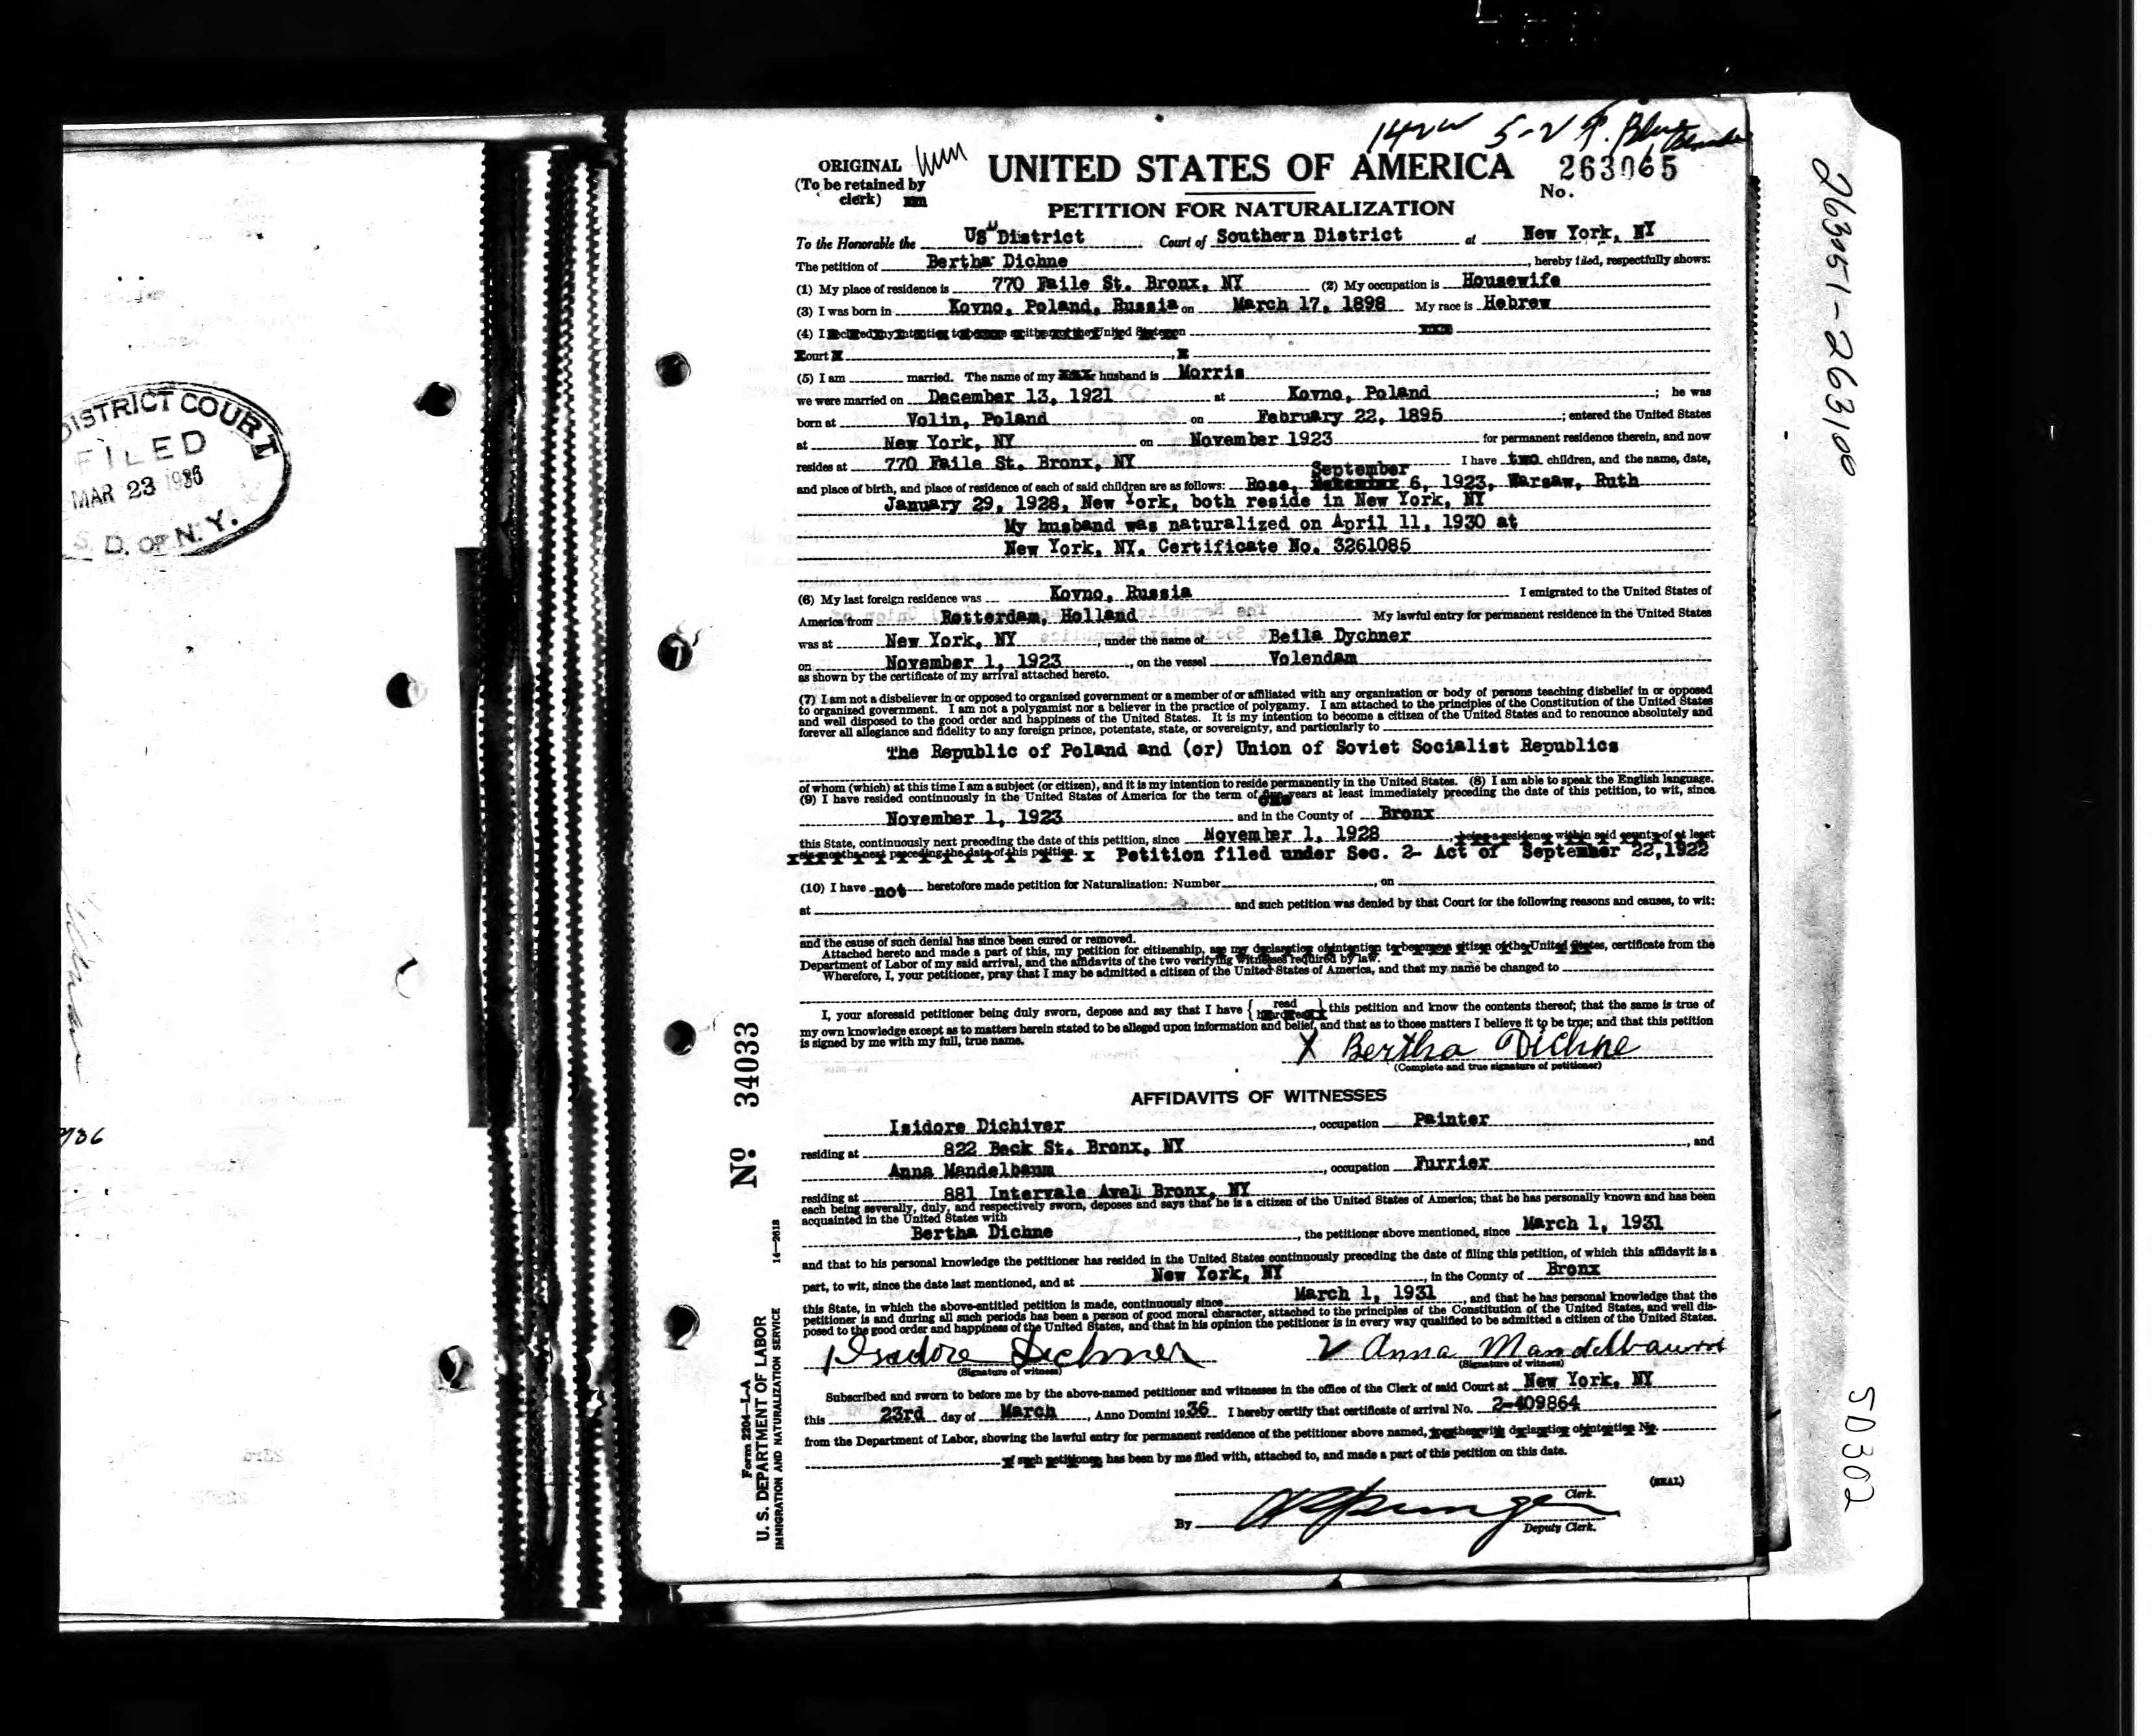 DISTRICT COURT
FILED
MAR 23 1936
S. D. OF N. Y.
1936
ORIGINAL
(To be retained by
clerk)
142W 5-2
UNITED STATES OF AMERICA
263065
No.
PETITION FOR NATURALIZATION
To the Honorable the US District Court of Southern District at New York, NY
The petition of Bertha Dichne, hereby filed, respectfully shows:
(1) My place of residence is 770 Faile St. Bronx, NY (2) My occupation is Housewife
(3) I was born in Kovno, Poland, Russia on March 17, 1898 My race is Hebrew
(4) I declared my intention to become a citizen of the United States on
Court
(5) I am married. The name of my husband is Morris
we were married on December 13, 1921 at Kovno, Poland ; he was
born at Volin, Poland on February 22, 1895 ; entered the United States
at New York, NY on November 1923 for permanent residence therein, and now
resides at 770 Faile St. Bronx, NY I have two children, and the name, date,
September
and place of birth, and place of residence of each of said children are as follows: Rose, 6, 1923, Warsaw, Ruth
January 29, 1928, New York, both reside in New York, NY
My husband was naturalized on April 11, 1930 at
New York, NY. Certificate No. 3261085
(6) My last foreign residence was Kovno, Russia I emigrated to the United States of
America from Rotterdam, Holland My lawful entry for permanent residence in the United States
was at New York, NY, under the name of Beila Dychner
on November 1, 1923, on the vessel Volendam
as shown by the certificate of my arrival attached hereto.
(7) I am not a disbeliever in or opposed to organized government or a member of or affiliated with any organization or body of persons teaching disbelief in or opposed
to organized government. I am not a polygamist nor a believer in the practice of polygamy. I am attached to the principles of the Constitution of the United States
and well disposed to the good order and happiness of the United States. It is my intention to become a citizen of the United States and to renounce absolutely and
forever all allegiance and fidelity to any foreign prince, potentate, state, or sovereignty, and particularly to
The Republic of Poland and (or) Union of Soviet Socialist Republics
of whom (which) at this time I am a subject (or citizen), and it is my intention to reside permanently in the United States. (8) I am able to speak the English language.
(9) I have resided continuously in the United States of America for the term of one years at least immediately preceding the date of this petition, to wit, since
November 1, 1923 and in the County of Bronx
this State, continuously next preceding the date of this petition, since November 1, 1928, being a residence within said county of at least
six months next preceding the date of this petition. x Petition filed under Sec. 2- Act of September 22,1922
(10) I have not heretofore made petition for Naturalization: Number, on
at and such petition was denied by that Court for the following reasons and causes, to wit:
and the cause of such denial has since been cured or removed.
Attached hereto and made a part of this, my petition for citizenship, are my declaration of intention to become a citizen of the United States, certificate from the
Department of Labor of my said arrival, and the affidavits of the two verifying witnesses required by law.
Wherefore, I, your petitioner, pray that I may be admitted a citizen of the United States of America, and that my name be changed to
I, your aforesaid petitioner being duly sworn, depose and say that I have { read } this petition and know the contents thereof; that the same is true of
my own knowledge except as to matters herein stated to be alleged upon information and belief, and that as to those matters I believe it to be true; and that this petition
is signed by me with my full, true name.
X Bertha Dichne
(Complete and true signature of petitioner)
AFFIDAVITS OF WITNESSES
Isidore Dichiver, occupation Painter
residing at 822 Beck St. Bronx, NY, and
Anna Mandelbaum, occupation Furrier
residing at 881 Intervale Avel Bronx, NY
each being severally, duly, and respectively sworn, deposes and says that he is a citizen of the United States of America; that he has personally known and has been
acquainted in the United States with
Bertha Dichne, the petitioner above mentioned, since March 1, 1931
and that to his personal knowledge the petitioner has resided in the United States continuously preceding the date of filing this petition, of which this affidavit is a
part, to wit, since the date last mentioned, and at New York, NY, in the County of Bronx
this State, in which the above-entitled petition is made, continuously since March 1, 1931, and that he has personal knowledge that the
petitioner is and during all such periods has been a person of good moral character, attached to the principles of the Constitution of the United States, and well dis-
posed to the good order and happiness of the United States, and that in his opinion the petitioner is in every way qualified to be admitted a citizen of the United States.
Isadore Dichner
Anna Mandelbaum
(Signature of witness)
(Signature of witness)
Subscribed and sworn to before me by the above-named petitioner and witnesses in the office of the Clerk of said Court at New York, NY
this 23rd day of March, Anno Domini 1936 I hereby certify that certificate of arrival No. 2-409864
from the Department of Labor, showing the lawful entry for permanent residence of the petitioner above named, together with declaration of intention No.
of such petitioner, has been by me filed with, attached to, and made a part of this petition on this date.
(SEAL)
Clerk.
By
Deputy Clerk.
No 34033
14—2618
Form 2204—L-A
U. S. DEPARTMENT OF LABOR
IMMIGRATION AND NATURALIZATION SERVICE
263051-263100
50302